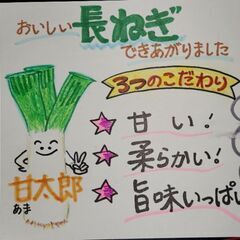 おいしい長ねぎ
できあがりました
3つのこだわり
甘い！
柔らかい！
旨味いっぱい
甘太郎
あま